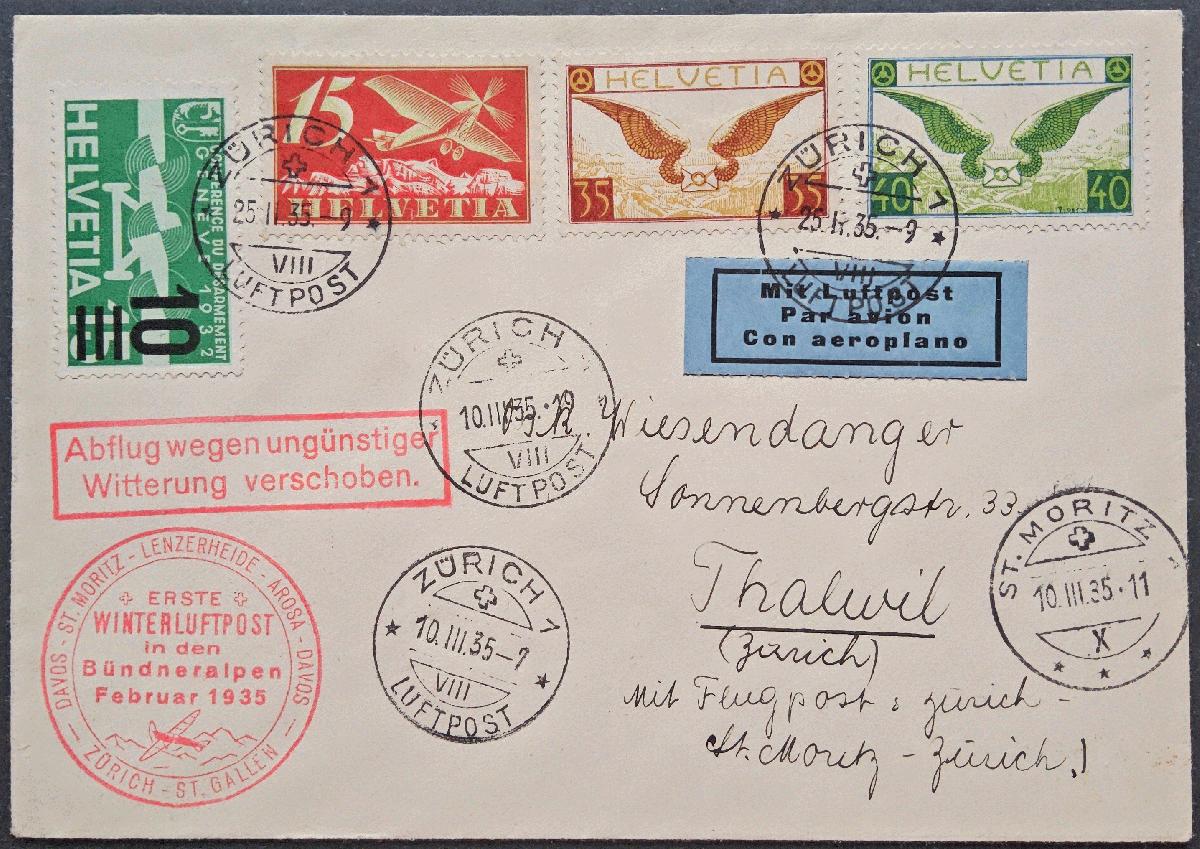 HELVETIA
CONFERENCE DU DESARMEMENT
GENEVE 1932
10
15
HELVETIA
HELVETIA
35 35
HELVETIA
40 40
ZÜRICH 1
25.II.35.-9
VIII
LUFTPOST
ZÜRICH 1
25.II.35.-9
VIII
LUFTPOST
Mit Luftpost
Par avion
Con aeroplano
ZÜRICH
10.III.35.-19
VIII
LUFTPOST
Abflug wegen ungünstiger
Witterung verschoben.
Wiesendanger
Sonnenbergstr. 33
Thalwil
(Zürich)
Mit Flugpost: Zürich -
St. Moritz - Zürich.)
ST. MORITZ 1
10.III.35.11
X
ZÜRICH 1
10.III.35-9
VIII
LUFTPOST
DAVOS - ST. MORITZ - LENZERHEIDE - AROSA - DAVOS
ERSTE
WINTERLUFTPOST
in den
Bündneralpen
Februar 1935
ZÜRICH - ST. GALLEN